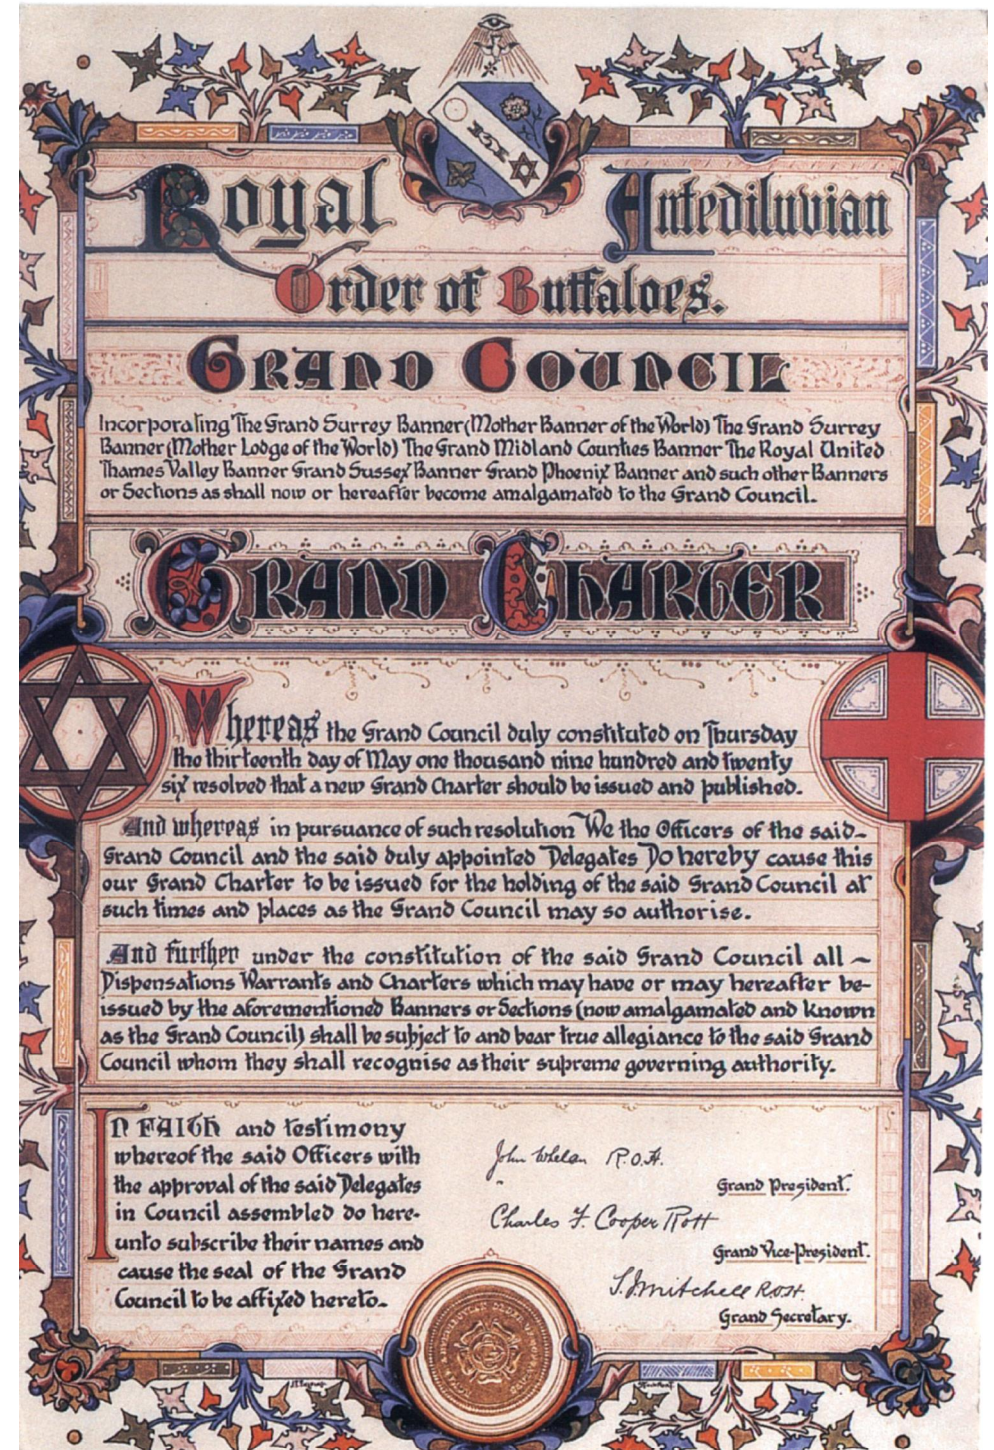 Royal Antediluvian
Order of Buffaloes.
GRAND COUNCIL
Incorporating The Grand Surrey Banner (Mother Banner of the World) The Grand Surrey
Banner (Mother Lodge of the World) The Grand Midland Counties Banner The Royal United
Thames Valley Banner Grand Sussex Banner Grand Phoenix Banner and such other Banners
or Sections as shall now or hereafter become amalgamated to the Grand Council.
GRAND CHARTER
Whereas the Grand Council duly constituted on Thursday
the thirteenth day of May one thousand nine hundred and twenty
six resolved that a new Grand Charter should be issued and published.
And whereas in pursuance of such resolution We the Officers of the said-
Grand Council and the said duly appointed Delegates Do hereby cause this
our Grand Charter to be issued for the holding of the said Grand Council at
such times and places as the Grand Council may so authorise.
And further under the constitution of the said Grand Council all ~
Dispensations Warrants and Charters which may have or may hereafter be-
issued by the aforementioned Banners or Sections (now amalgamated and known
as the Grand Council) shall be subject to and bear true allegiance to the said Grand
Council whom they shall recognise as their supreme governing authority.
IN FAITH and testimony
whereof the said Officers with
the approval of the said Delegates
in Council assembled do here-
unto subscribe their names and
cause the seal of the Grand
Council to be affixed hereto.
John Whelan R.O.H.
Grand President.
Charles F. Cooper ROH
Grand Vice-President.
S. J. Mitchell ROH.
Grand Secretary.